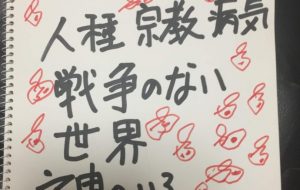 人種 宗教 病気
戦争のない
世界